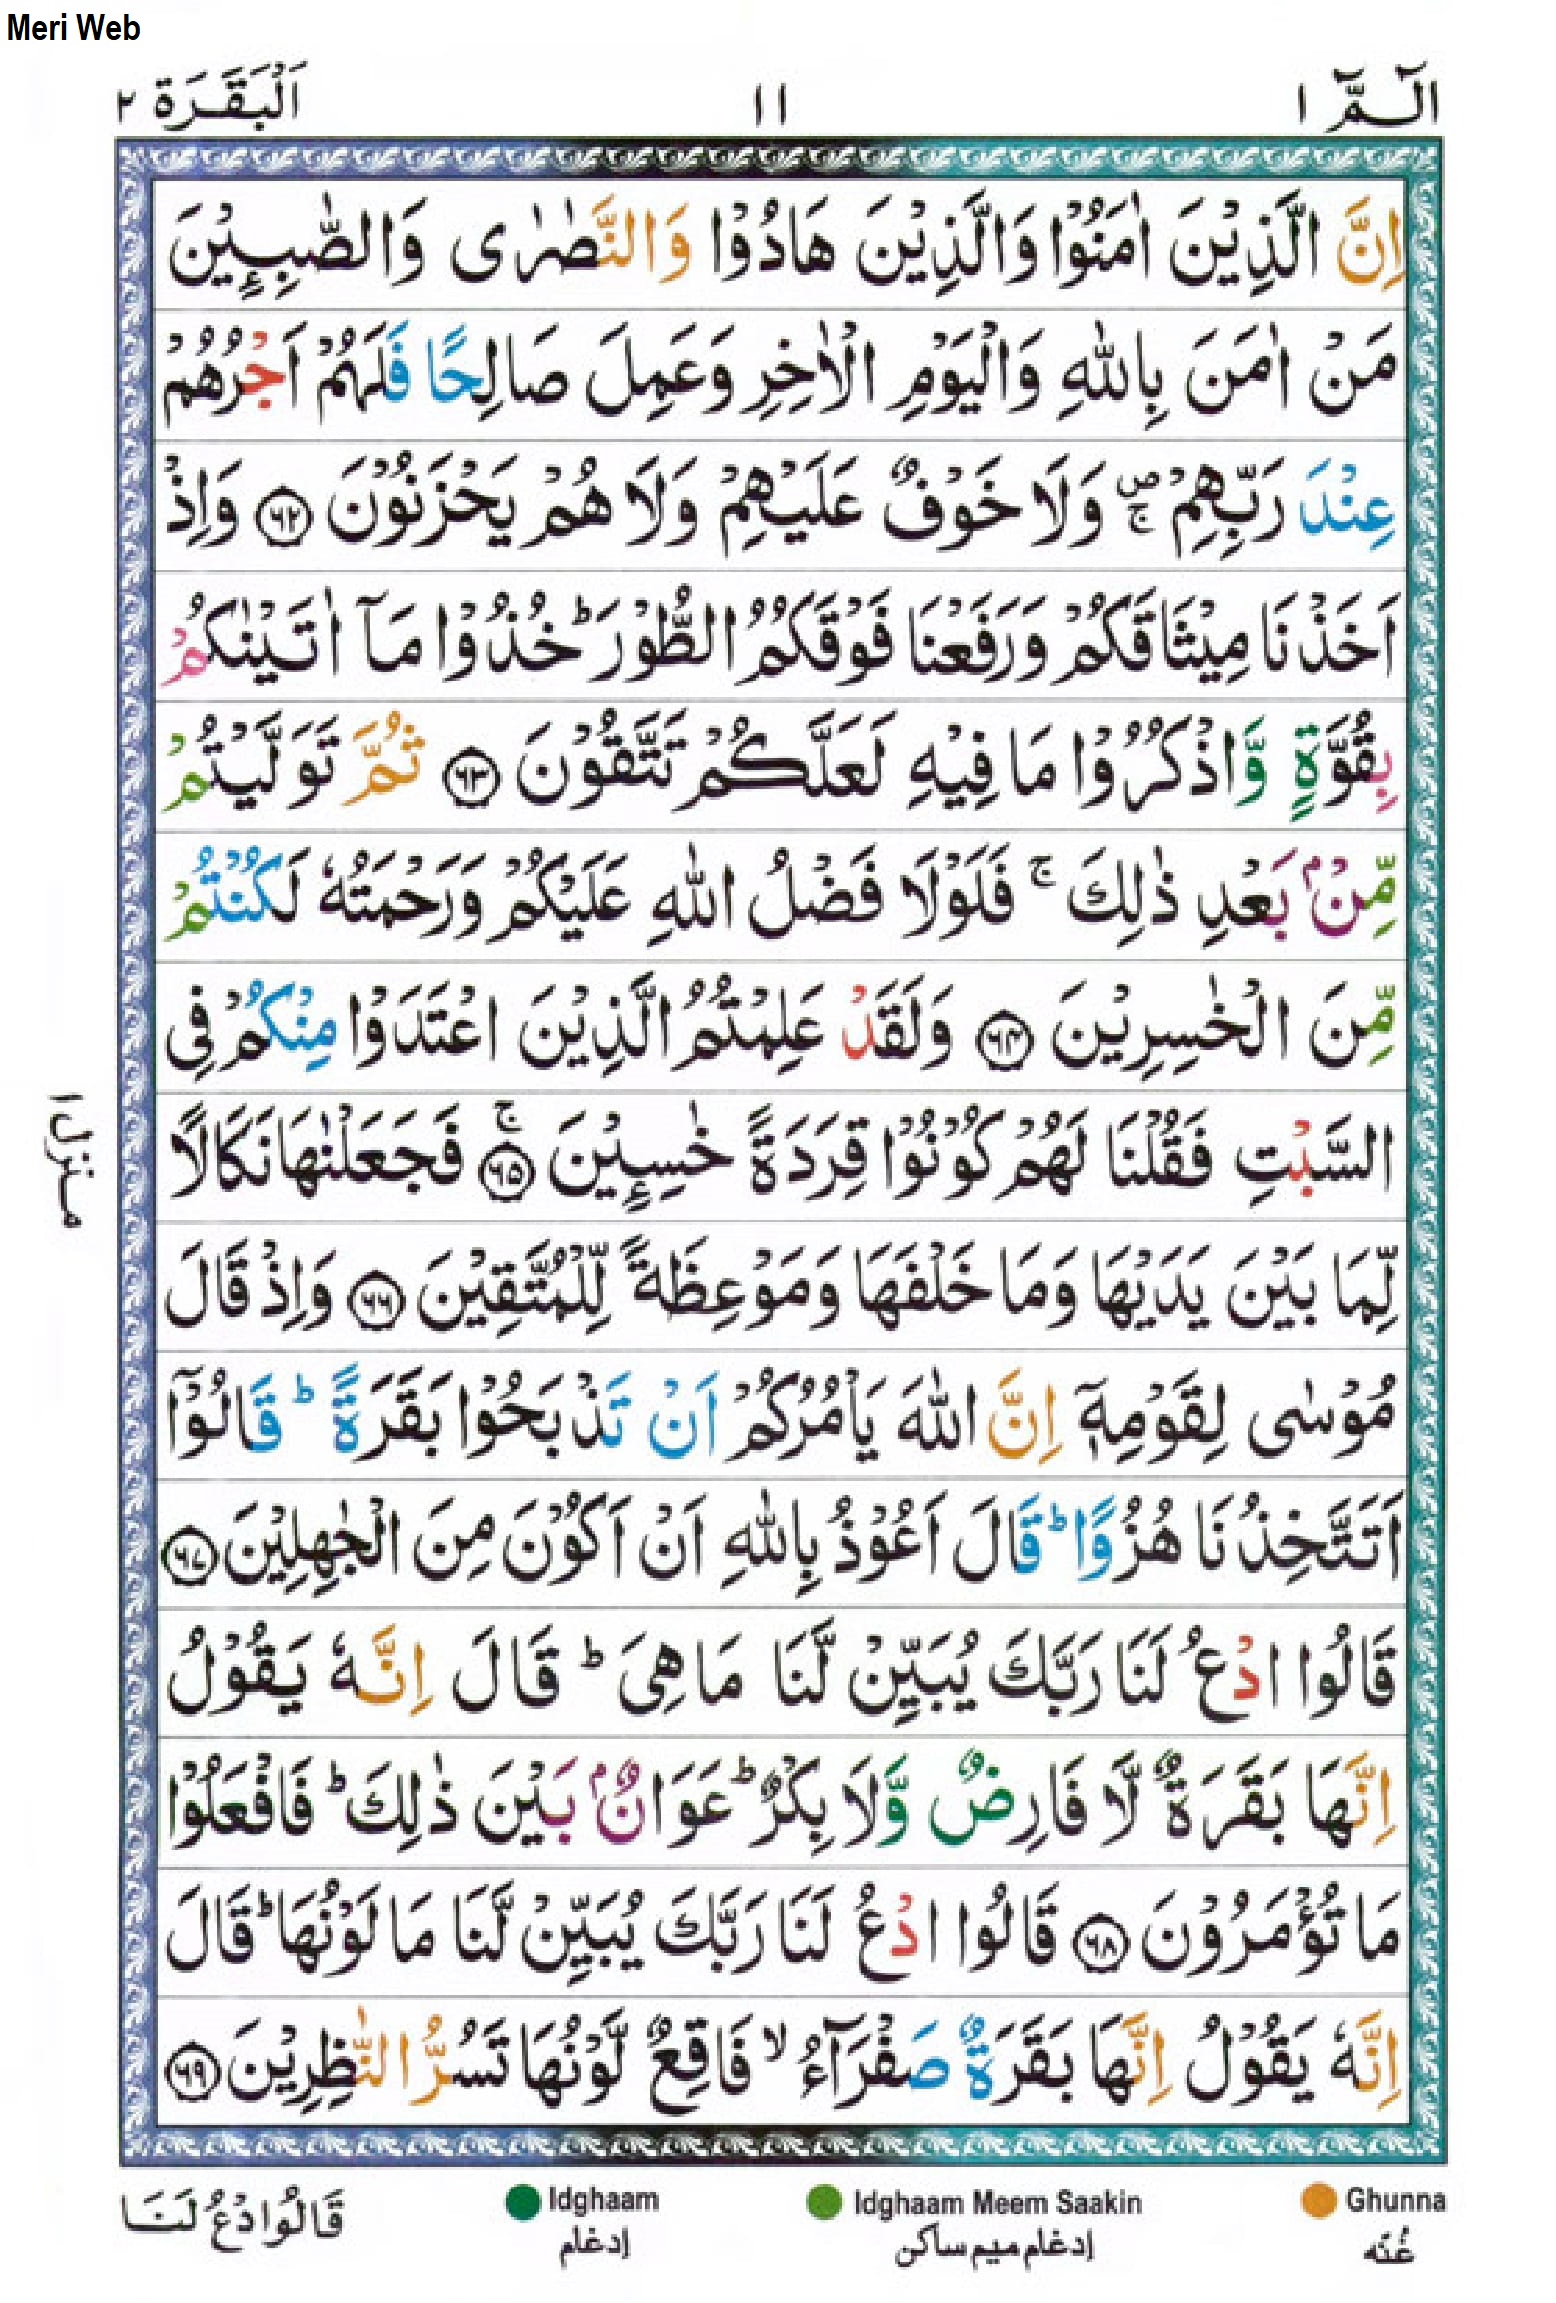 Meri Web
الٓـمّٓ ١
١١
اَلْبَقَرَة ٢
اِنَّ الَّذِيْنَ اٰمَنُوْا وَالَّذِيْنَ هَادُوْا وَالنَّصٰرٰى وَالصّٰبِـِٕيْنَ
مَنْ اٰمَنَ بِاللّٰهِ وَالْيَوْمِ الْاٰخِرِ وَعَمِلَ صَالِحًا فَلَهُمْ اَجْرُهُمْ
عِنْدَ رَبِّهِمْ ۚۖ وَلَا خَوْفٌ عَلَيْهِمْ وَلَا هُمْ يَحْزَنُوْنَ ﴿٦٢﴾ وَاِذْ
اَخَذْنَا مِيْثَاقَكُمْ وَرَفَعْنَا فَوْقَكُمُ الطُّوْرَ ؕ خُذُوْا مَآ اٰتَيْنٰكُمْ
بِقُوَّةٍ وَّاذْكُرُوْا مَا فِيْهِ لَعَلَّكُمْ تَتَّقُوْنَ ﴿٦٣﴾ ثُمَّ تَوَلَّيْتُمْ
مِّنْۢ بَعْدِ ذٰلِكَ ۚ فَلَوْلَا فَضْلُ اللّٰهِ عَلَيْكُمْ وَرَحْمَتُهٗ لَكُنْتُمْ
مِّنَ الْخٰسِرِيْنَ ﴿٦٤﴾ وَلَقَدْ عَلِمْتُمُ الَّذِيْنَ اعْتَدَوْا مِنْكُمْ فِى
السَّبْتِ فَقُلْنَا لَهُمْ كُوْنُوْا قِرَدَةً خٰسِـِٕيْنَ ۚ﴿٦٥﴾ فَجَعَلْنٰهَا نَكَالًا
لِّمَا بَيْنَ يَدَيْهَا وَمَا خَلْفَهَا وَمَوْعِظَةً لِّلْمُتَّقِيْنَ ﴿٦٦﴾ وَاِذْ قَالَ
مُوْسٰى لِقَوْمِهٖٓ اِنَّ اللّٰهَ يَاْمُرُكُمْ اَنْ تَذْبَحُوْا بَقَرَةً ؕ قَالُوْٓا
اَتَتَّخِذُنَا هُزُوًا ؕ قَالَ اَعُوْذُ بِاللّٰهِ اَنْ اَكُوْنَ مِنَ الْجٰهِلِيْنَ ﴿٦٧﴾
قَالُوا ادْعُ لَنَا رَبَّكَ يُبَيِّنْ لَّنَا مَا هِىَ ؕ قَالَ اِنَّهٗ يَقُوْلُ
اِنَّهَا بَقَرَةٌ لَّا فَارِضٌ وَّلَا بِكْرٌ ؕ عَوَانٌۢ بَيْنَ ذٰلِكَ ؕ فَافْعَلُوْا
مَا تُؤْمَرُوْنَ ﴿٦٨﴾ قَالُوا ادْعُ لَنَا رَبَّكَ يُبَيِّنْ لَّنَا مَا لَوْنُهَا ؕ قَالَ
اِنَّهٗ يَقُوْلُ اِنَّهَا بَقَرَةٌ صَفْرَآءُ ۙ فَاقِعٌ لَّوْنُهَا تَسُرُّ النّٰظِرِيْنَ ﴿٦٩﴾
منزل ١
Ghunna
غُنّه
Idghaam Meem Saakin
إدغام ميم ساكن
Idghaam
إدغام
قَالُوا ادْعُ لَنَا